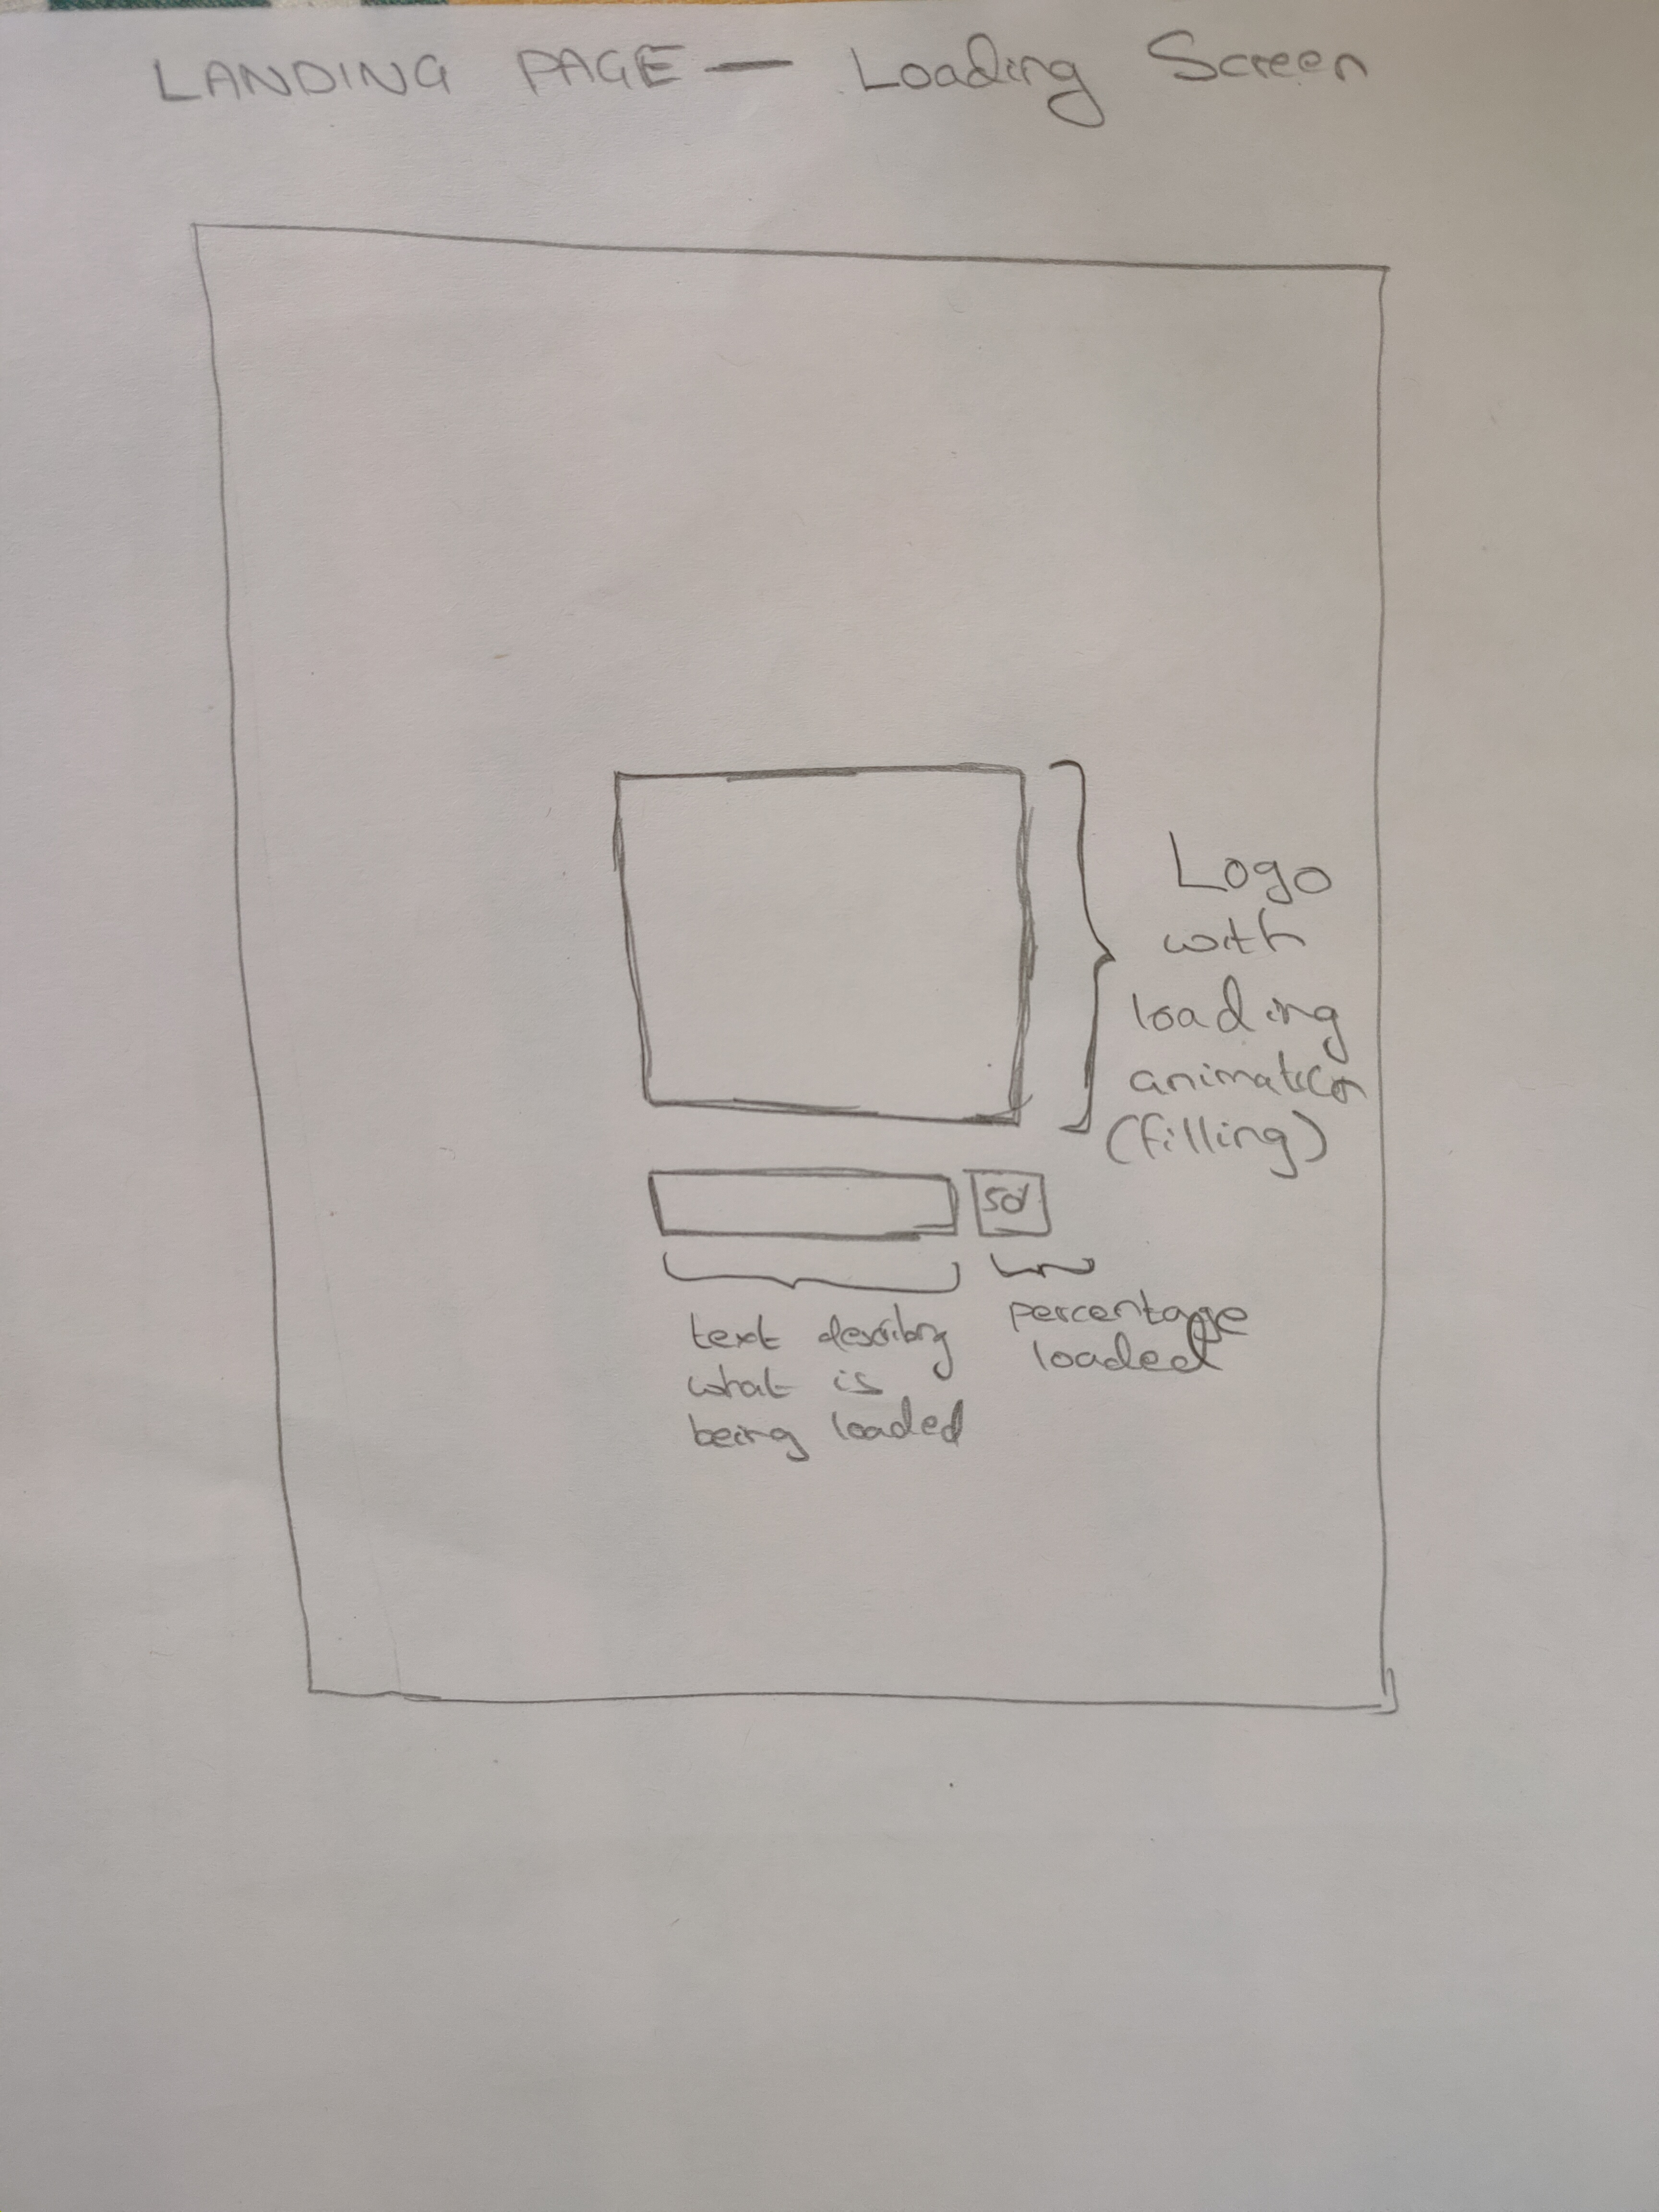 LANDING PAGE — Loading Screen
Logo
with
loading
animation
(filling)
text describing
what is
being loaded
percentage
loaded